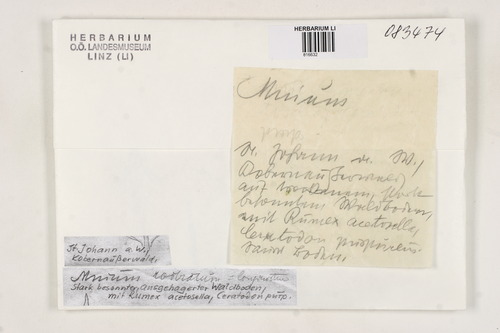 HERBARIUM
O.Ö. LANDESMUSEUM
LINZ (LI)
HERBARIUM LI
083474
Mnium
St. Johann a. W.,
Kobernaußerwald,
auf trockenem, stark
besonntem Waldboden,
mit Rumex acetosella,
Ceratodon purpureus
Boden.
St. Johann a. W.,
Kobernaußerwald,
Mnium rostratum =
Stark besonnter, ausgehagerter Waldboden,
mit Rumex acetosella, Ceratodon purp.